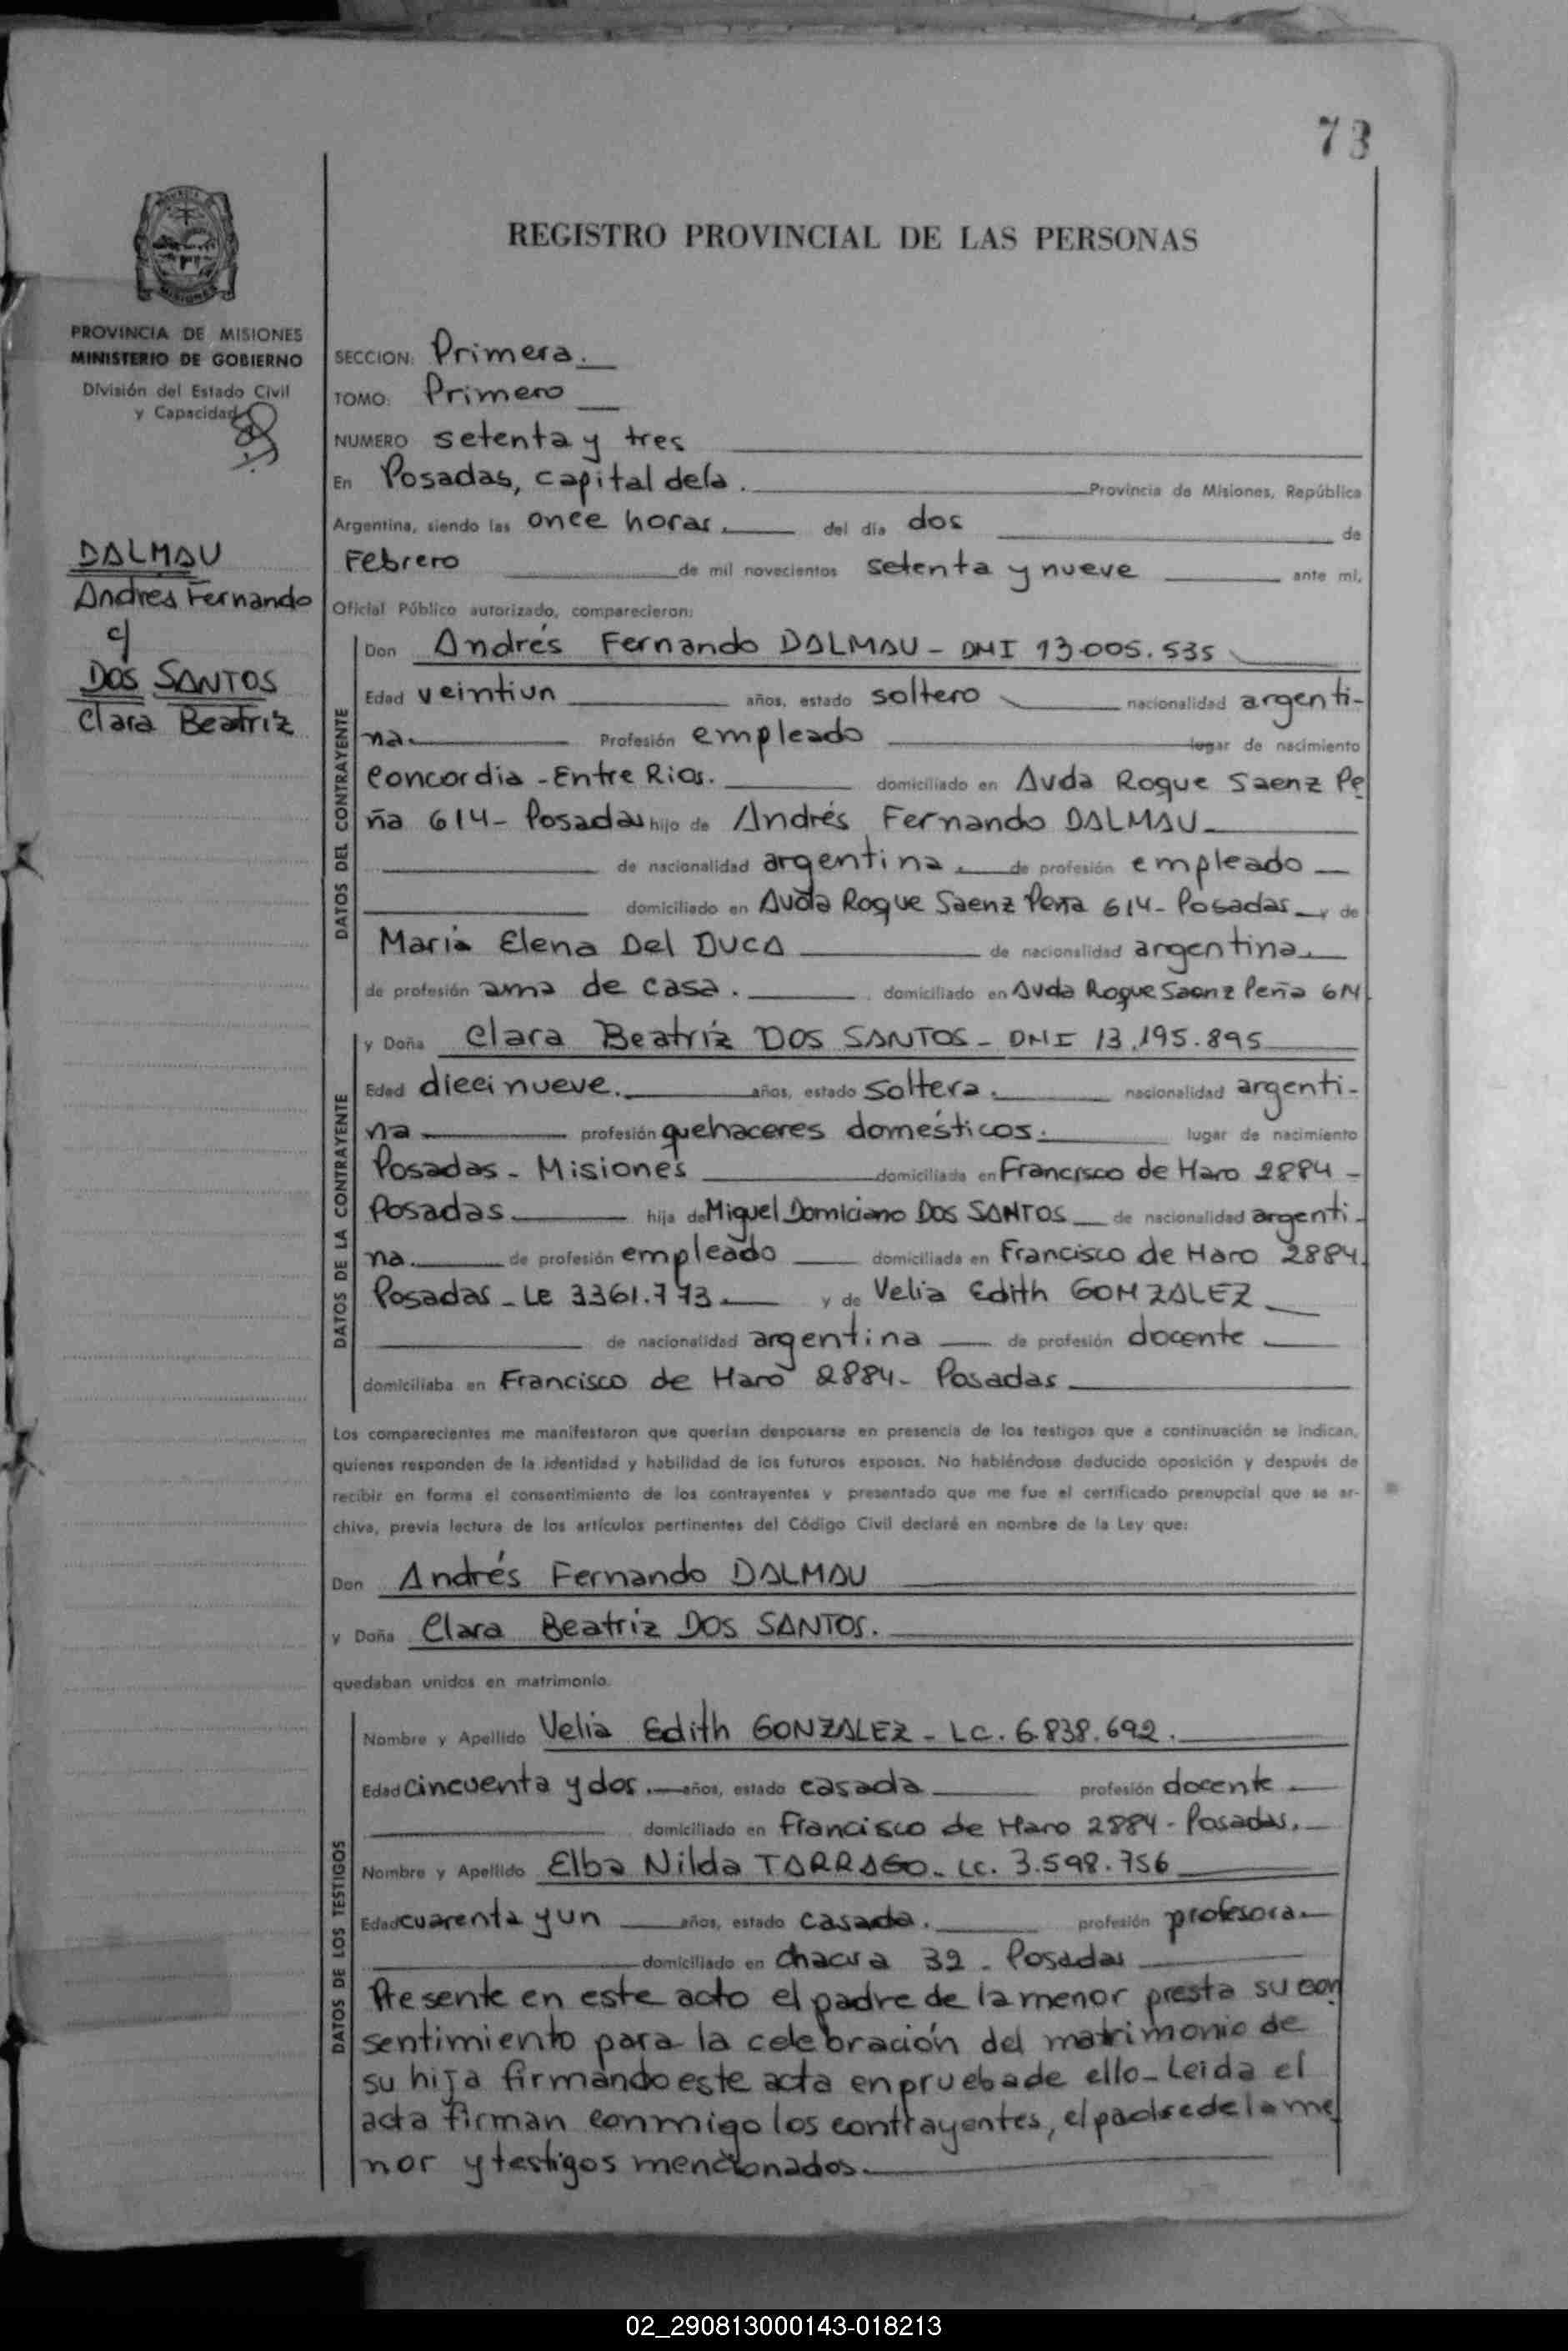 73
REGISTRO PROVINCIAL DE LAS PERSONAS
MISIONES
PROVINCIA DE MISIONES
MINISTERIO DE GOBIERNO
División del Estado Civil
y Capacidad
DALMAU
Andres Fernando
c/
DOS SANTOS
Clara Beatriz
SECCION: Primera.
TOMO: Primero
NUMERO setenta y tres
En Posadas, capital dela. Provincia de Misiones, República
Argentina, siendo las once horas. del día dos de
Febrero de mil novecientos setenta y nueve ante mi,
Oficial Público autorizado, comparecieron:
DATOS DEL CONTRAYENTE
Don Andrés Fernando DALMAU - DNI 13.005.535
Edad veintiun años, estado soltero nacionalidad argenti-
na. Profesión empleado lugar de nacimiento
Concordia - Entre Rios. domiciliado en Avda Roque Saenz Pe
ña 614- Posadas hijo de Andrés Fernando DALMAU
de nacionalidad argentina. de profesión empleado
domiciliado en Avda Roque Saenz Peña 614- Posadas y de
Maria Elena Del DUCA de nacionalidad argentina.
de profesión ama de casa. domiciliado en Avda Roque Saenz Peña 614
DATOS DE LA CONTRAYENTE
y Doña Clara Beatriz DOS SANTOS - DNI 13.195.895
Edad diecinueve. años, estado soltera. nacionalidad argenti-
na profesión quehaceres domésticos. lugar de nacimiento
Posadas - Misiones domiciliada en Francisco de Haro 2884 -
Posadas hija de Miguel Domiciano DOS SANTOS de nacionalidad argenti-
na. de profesión empleado domiciliada en Francisco de Haro 2884.
Posadas - LE 3361.773. y de Velia Edith GONZALEZ
de nacionalidad argentina de profesión docente
domiciliaba en Francisco de Haro 2884- Posadas
Los comparecientes me manifestaron que querían desposarse en presencia de los testigos que a continuación se indican,
quienes responden de la identidad y habilidad de los futuros esposos. No habiéndose deducido oposición y después de
recibir en forma el consentimiento de los contrayentes y presentado que me fue el certificado prenupcial que se ar-
chiva, previa lectura de los artículos pertinentes del Código Civil declaré en nombre de la Ley que:
Don Andrés Fernando DALMAU
y Doña Clara Beatriz DOS SANTOS.
quedaban unidos en matrimonio.
DATOS DE LOS TESTIGOS
Nombre y Apellido Velia Edith GONZALEZ - LC. 6.838.692.
Edad cincuenta y dos. años, estado casada profesión docente
domiciliado en Francisco de Haro 2884 - Posadas.
Nombre y Apellido Elba Nilda TARRAGO - LC. 3.598.756
Edad cuarenta y un años, estado casada. profesión profesora
domiciliado en chacra 32 - Posadas
Presente en este acto el padre de la menor presta su con
sentimiento para la celebración del matrimonio de
su hija firmando este acta en prueba de ello - Leida el
acta firman conmigo los contrayentes, el padre de la me
nor y testigos mencionados.
02_290813000143-018213